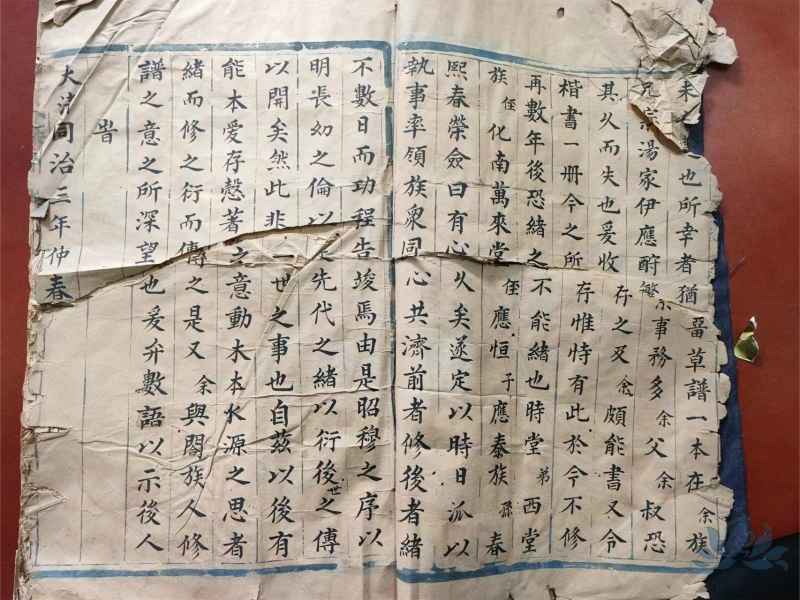 也所幸者猶畱草譜一本在余族
兄宗湯家伊應酧繁事務多余父余叔恐
其久而失也爰收存之又念頗能書又令
楷書一冊今之所存惟恃有此於今不修
再數年後恐緒之不能緒也時堂弟西堂
族侄化南萬來堂侄應恒子應泰族孫春
熙春榮僉曰有心久矣遂定以時日派以
執事率領族衆同心共濟前者修後者緒
不數日而功程告竣焉由是昭穆之序以
明長幼之倫以先代之緒以衍後世之傳
以開矣然此非一世之事也自茲以後有
能本愛存慤著之意動木本水源之思者
緒而修之衍而傳之是又余與閤族人修
譜之意之所深望也爰弁數語以示後人
旹
大清同治三年仲春